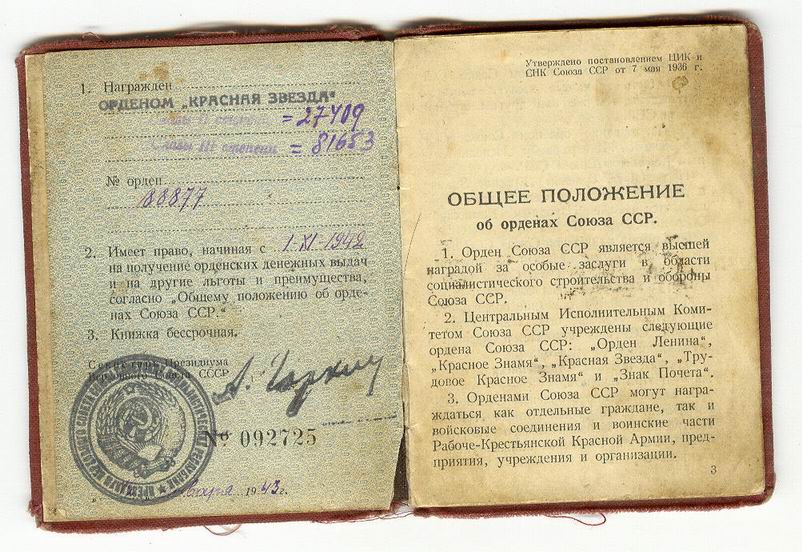 1. Награжден
ОРДЕНОМ „КРАСНАЯ ЗВЕЗДА"
Славы II степени = 27409
Славы III степени = 81653
№ орден
88877
2. Имеет право, начиная с 1-XI-1942
на получение орденских денежных выдач
и на другие льготы и преимущества,
согласно „Общему положению об орде-
нах Союза ССР."
3. Книжка бессрочная.
Президиума
СССР
№ 092725
1943 г.
Утверждено постановлением ЦИК и
СНК Союза ССР от 7 мая 1936 г.
ОБЩЕЕ ПОЛОЖЕНИЕ
об орденах Союза ССР.
1. Орден Союза ССР является высшей
наградой за особые заслуги в области
социалистического строительства и обороны
Союза ССР.
2. Центральным Исполнительным Коми-
тетом Союза ССР учреждены следующие
ордена Союза ССР: „Орден Ленина",
„Красное Знамя", „Красная Звезда", „Тру-
довое Красное Знамя" и „Знак Почета".
3. Орденами Союза ССР могут награ-
ждаться как отдельные граждане, так и
войсковые соединения и воинские части
Рабоче-Крестьянской Красной Армии, пред-
приятия, учреждения и организации.
3